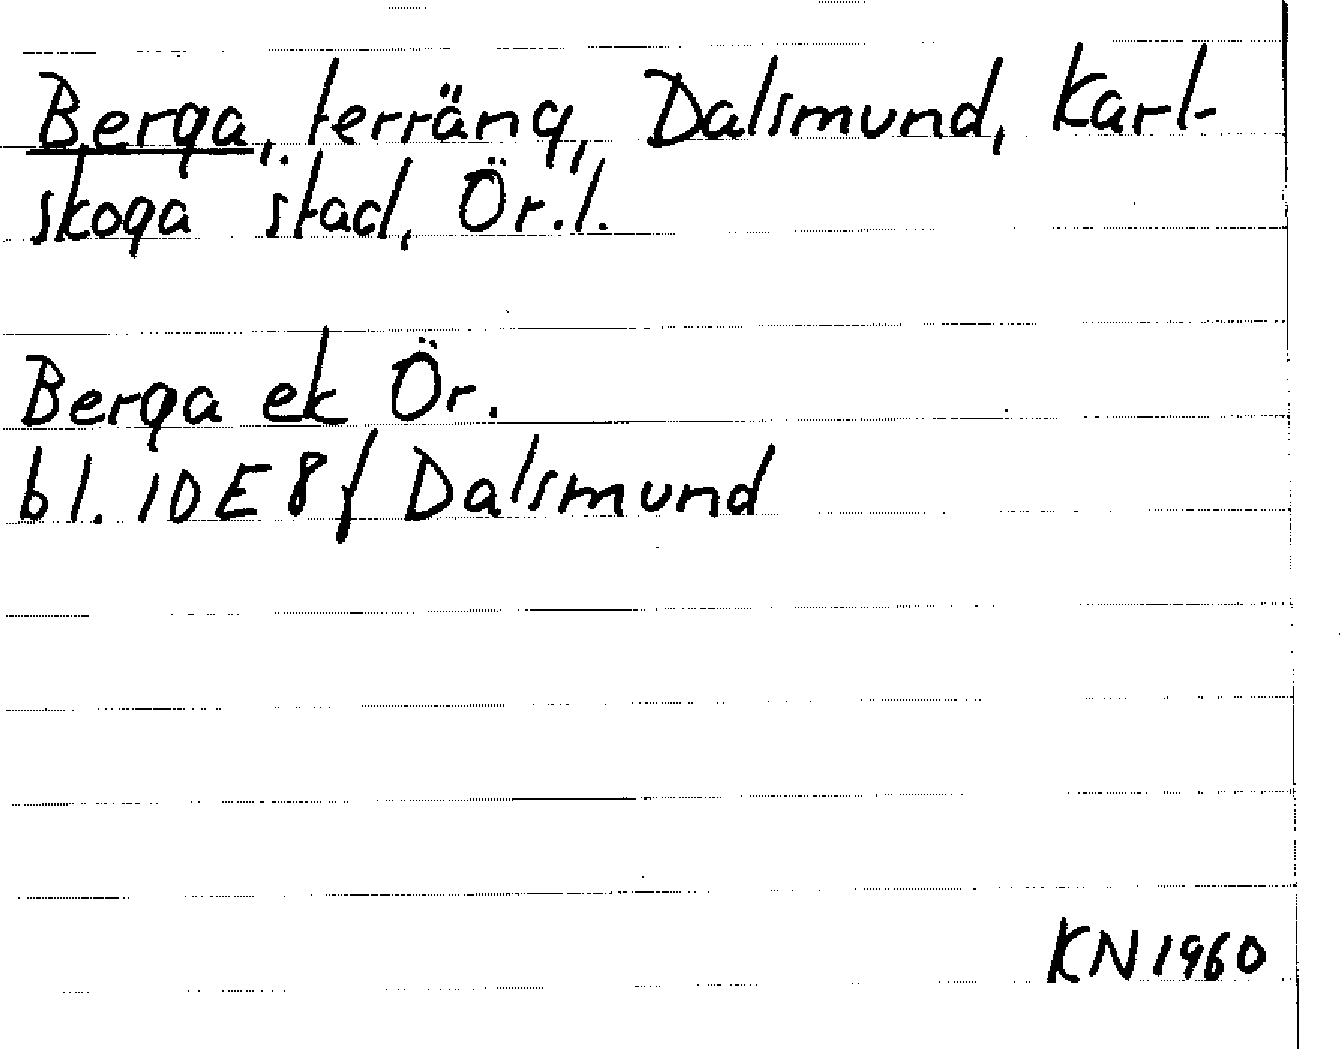 Berga, terräng, Dalsmund, Karl-
skoga stad, Ör. l.
Berga ek Ör.
bl. 10E8f Dalsmund
KN 1960